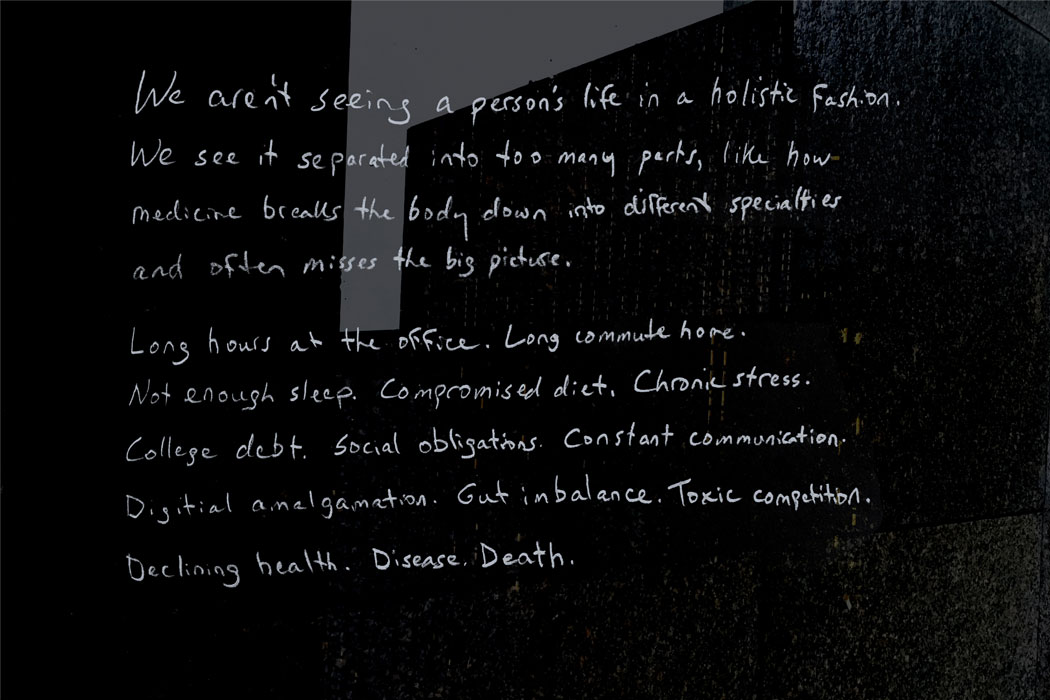 We aren't seeing a person's life in a holistic fashion.
We see it separated into too many parts, like how
medicine breaks the body down into different specialties
and often misses the big picture.
Long hours at the office. Long commute home.
Not enough sleep. Compromised diet. Chronic stress.
College debt. Social obligations. Constant communication.
Digitial amalgamation. Gut imbalance. Toxic competition.
Declining health. Disease. Death.